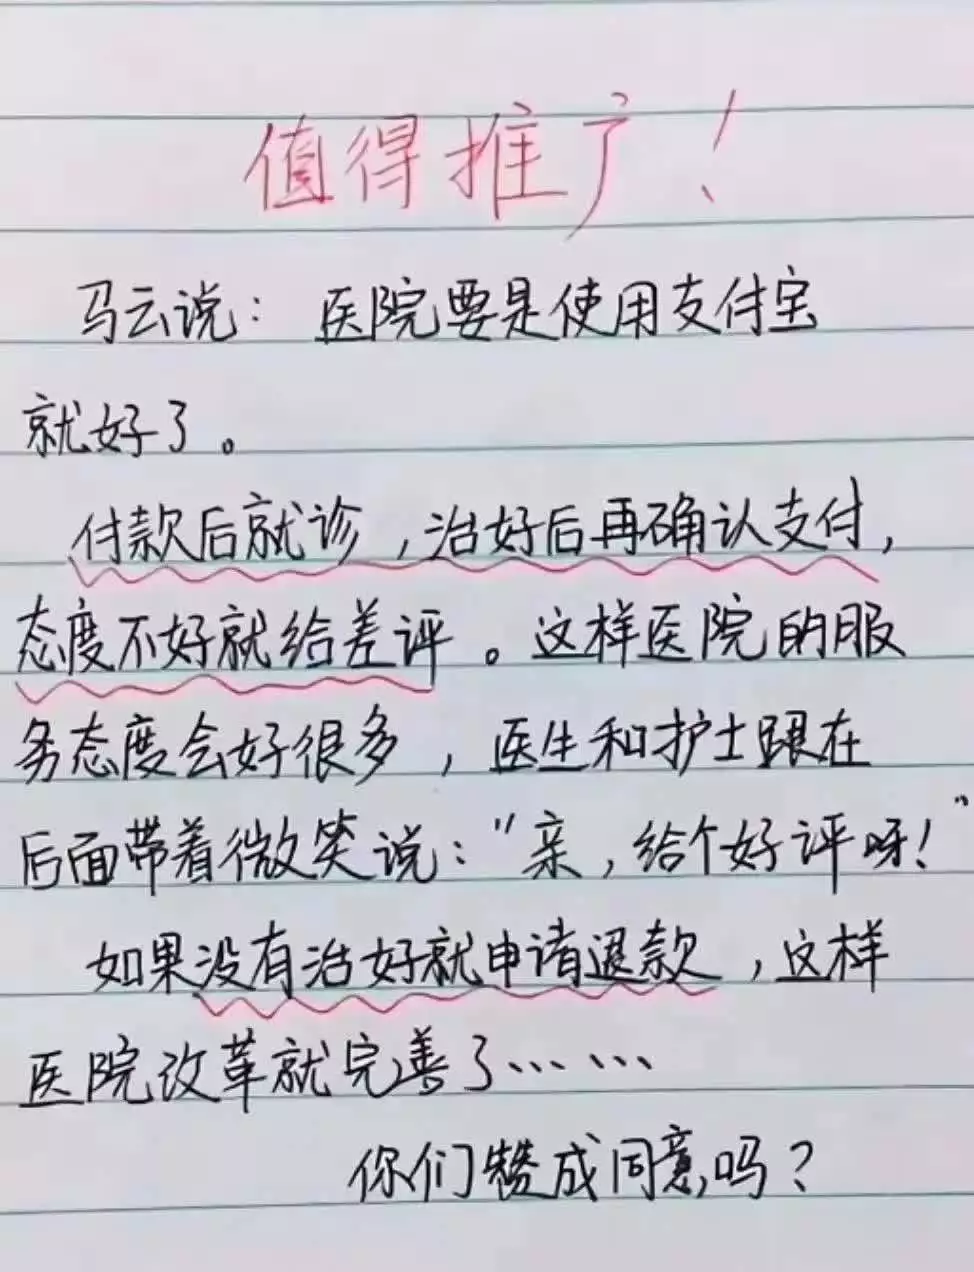 值得推广！
马云说：医院要是使用支付宝
就好了。
付款后就诊，治好后再确认支付，
态度不好就给差评。这样医院的服
务态度会好很多，医生和护士跟在
后面带着微笑说：“亲，给个好评呀！”
如果没有治好就申请退款，这样
医院改革就完善了……
你们赞成同意吗？